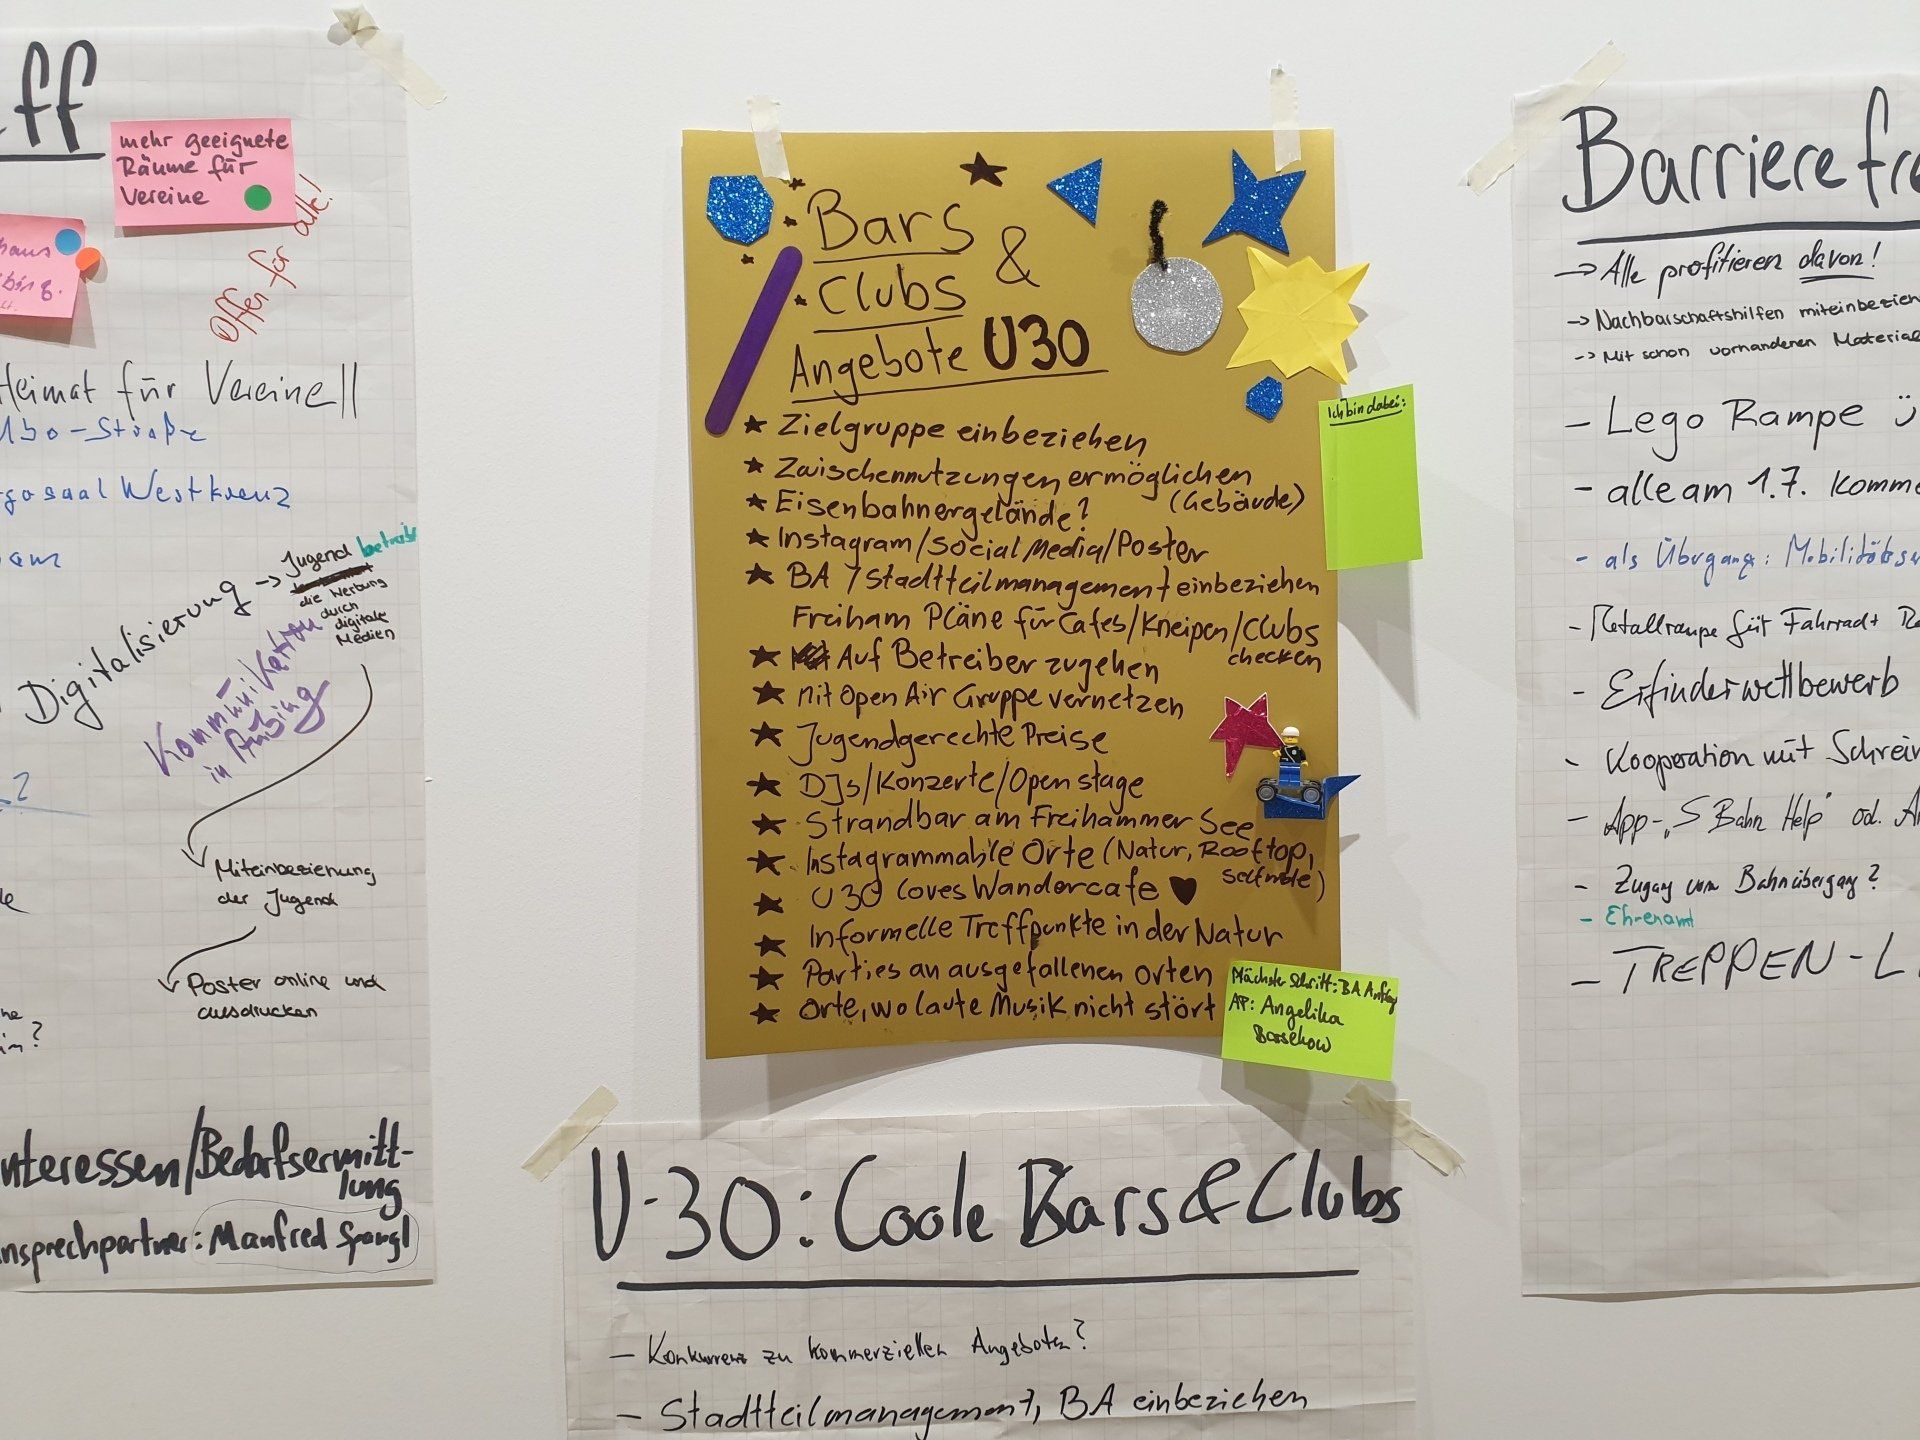 ff
mehr geeignete
Räume für
Vereine
haus
Offen für alle!
Heimat für Vereine
Ubo-Straße
gosaal Westkreuz
am
Digitalisierung → Jugend betreibt
die Werbung
durch
digitale
Medien
Kommunikation
in Aubing
?
Miteinbeziehung
der Jugend
Poster online und
ausdrucken
nteressen/Bedarfsermitt-
lung
nsprechpartner: Manfred Spangl
Bars
&
Clubs
Angebote U30
★ Zielgruppe einbeziehen
★ Zwischennutzungen ermöglichen
(Gebäude)
★ Eisenbahnergelände?
★ Instagram/Social Media/Poster
★ BA / Stadtteilmanagement einbeziehen
Freiham Pläne für Cafes/Kneipen/Clubs
checken
★ Auf Betreiber zugehen
★ Mit Open Air Gruppe vernetzen
★ Jugendgerechte Preise
★ DJs/Konzerte/Open stage
★ Strandbar am Freihammer See
★ Instagrammable Orte (Natur, Rooftop,
★ U30 loves Wandercafe ♥
★ Informelle Treffpunkte in der Natur
★ Parties an ausgefallenen Orten
★ Orte, wo laute Musik nicht stört
Ich bin dabei:
Nächster Schritt: BA Antrag
AP: Angelika
U-30: Coole Bars & Clubs
- Konkurrenz zu kommerziellen Angeboten?
- Stadtteilmanagement, BA einbeziehen
Barrierefre
→ Alle profitieren davon!
→ Nachbarschaftshilfen miteinbeziehen
→ Mit schon vorhandenen Material
- Lego Rampe ü
- alle am 1.7. komme
- als Übergang: Mobilitäts
- Metallrampe für Fahrrad+ R
- Erfinderwettbewerb
- Kooperation mit Schrein
- App-„S Bahn Help" od. A
- Zugang vom Bahnübergang?
- Ehrenamt
- TREPPEN-L